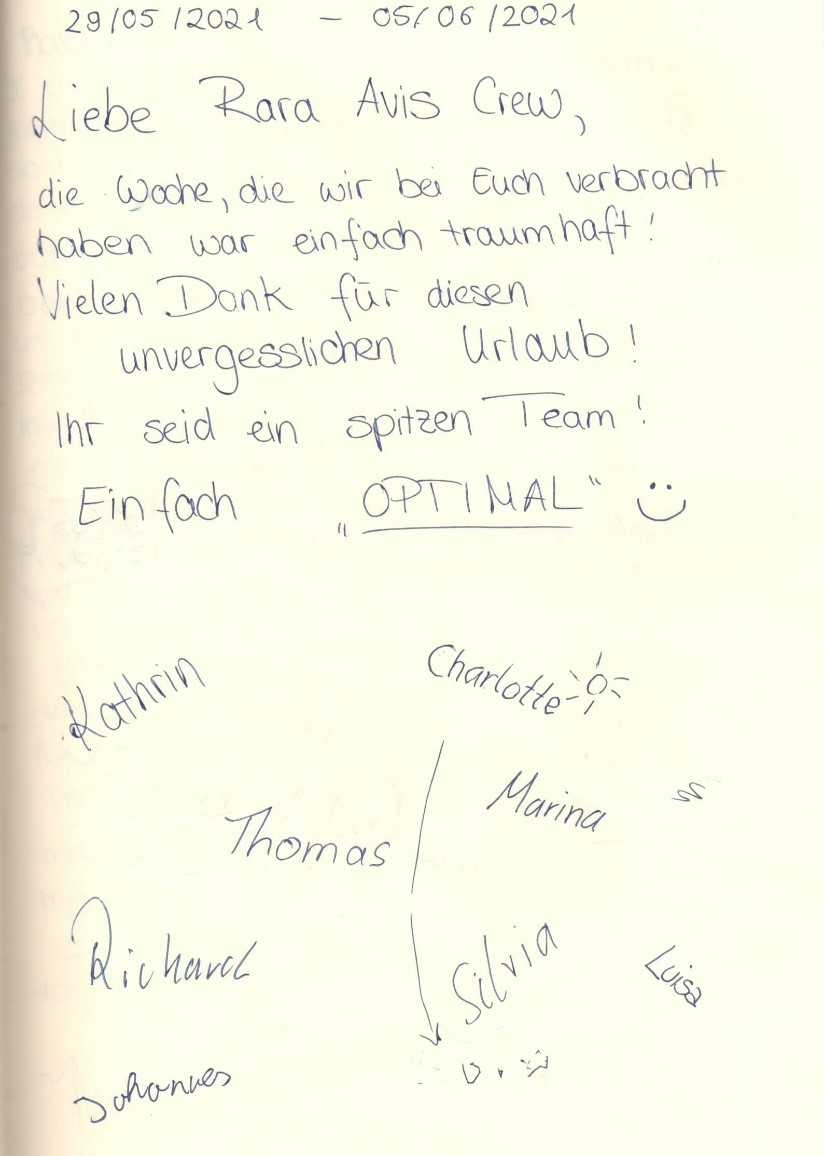 29/05/2021 - 05/06/2021
Liebe Rara Avis Crew,
die Woche, die wir bei Euch verbracht
haben war einfach traumhaft!
Vielen Dank für diesen
unvergesslichen Urlaub!
Ihr seid ein spitzen Team!
Einfach „OPTIMAL“
Kathrin
Charlotte
Marina
Thomas
Richard
Silvia
Luisa
Johannes